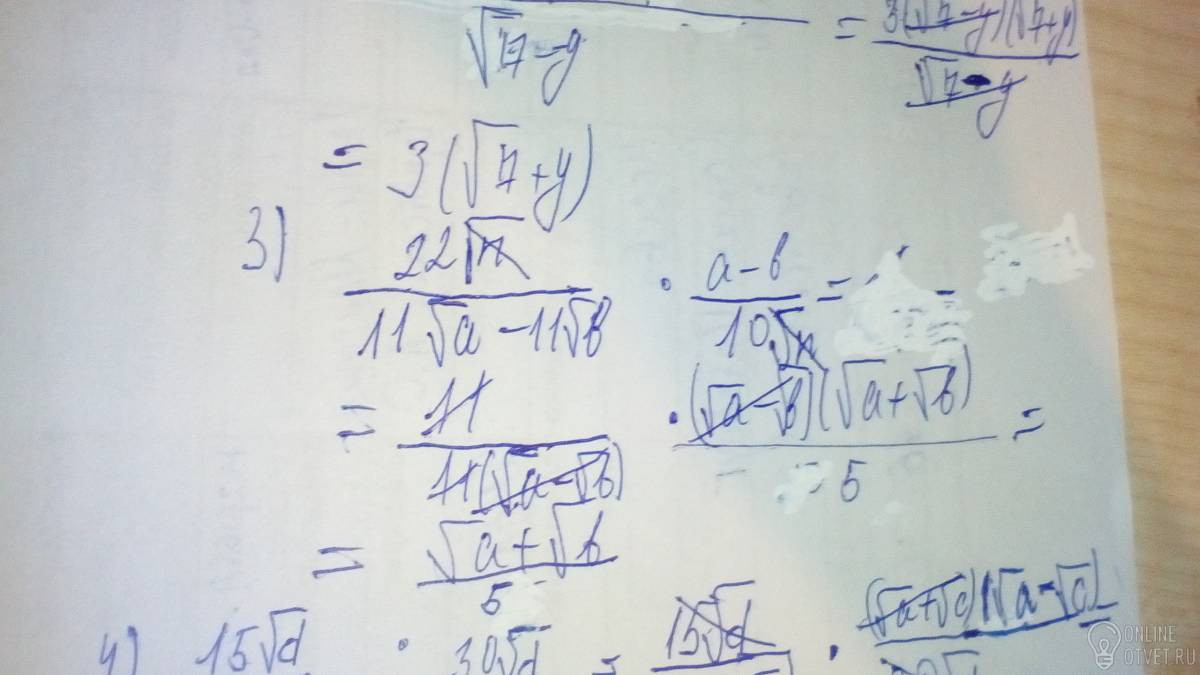 √7-y = 3(√7-y)(√7+y)
√7-y
= 3(√7+y)
3) 22√n
11√a-11√b · a-b
10√n =
= 11
11(√a-√b) · (√a-√b)(√a+√b)
5 =
= √a+√b
5
4) 15√d · 30√d = 15√d · (√a+√c)(√a-√c)
ONLINE
OTVET.RU